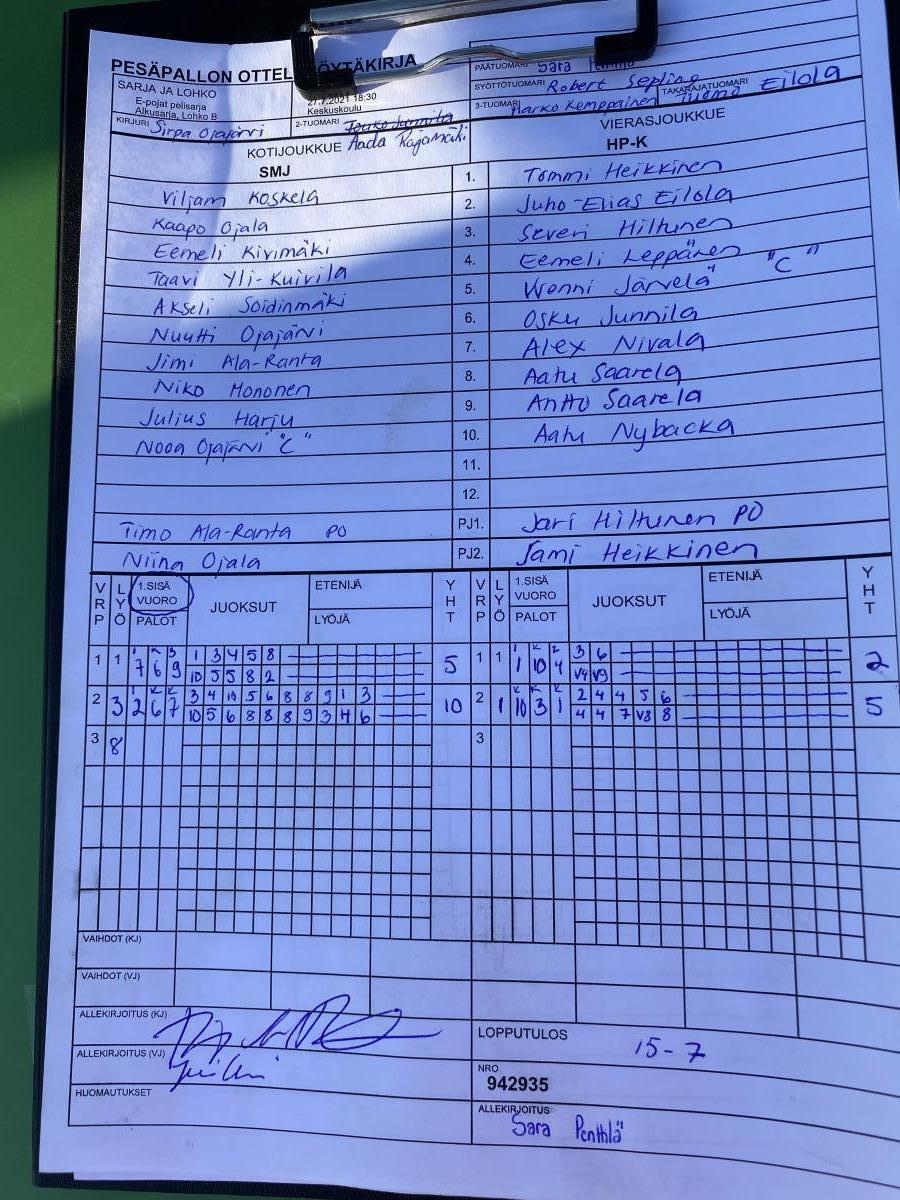 PESÄPALLON OTTEL ÖYTÄKIRJA
SARJA JA LOHKO
E-pojat pelisarja
Alkusarja, Lohko B
27.7.2021 18:30
Keskuskoulu
PÄÄTUOMARI Sara
SYÖTTÖTUOMARI Robert Sepling
TAKARAJATUOMARI Tuomo Eilola
3-TUOMARI Marko Kemppainen
KIRJURI Sirpa Ojajärvi
2-TUOMARI
KOTIJOUKKUE Aada Rajamäki
VIERASJOUKKUE
SMJ
HP-K
Viljam Koskela 1. Tommi Heikkinen
Kaapo Ojala 2. Juho-Elias Eilola
Eemeli Kivimäki 3. Severi Hiltunen
Taavi Yli-Kuivila 4. Eemeli Leppänen "C"
Akseli Soidinmäki 5. Wenni Järvelä
Nuutti Ojajärvi 6. Osku Junnila
Jimi Ala-Ranta 7. Alex Nivala
Niko Mononen 8. Aatu Saarela
Julius Harju 9. Antto Saarela
Nooa Ojajärvi "C" 10. Aatu Nybacka
11.
12.
Timo Ala-Ranta PO PJ1. Jari Hiltunen PO
Niina Ojala PJ2. Sami Heikkinen
VRP LYÖ 1.SISÄ VUORO PALOT JUOKSUT ETENIJÄ LYÖJÄ YHT VRP LYÖ 1.SISÄ VUORO PALOT JUOKSUT ETENIJÄ LYÖJÄ YHT
1 1 7 6 9 1 3 4 5 8 5 1 1 1 10 4 3 6 2
10 5 5 8 2 V4 V9
2 3 2 6 7 3 4 10 5 6 8 8 9 1 3 10 2 1 10 3 1 2 4 4 5 6 5
10 5 6 8 8 8 9 3 4 6 4 4 7 V3 8
3 8 3
VAIHDOT (KJ)
VAIHDOT (VJ)
ALLEKIRJOITUS (KJ)
LOPPUTULOS 15-7
ALLEKIRJOITUS (VJ)
NRO
942935
HUOMAUTUKSET
ALLEKIRJOITUS
Sara Penttilä